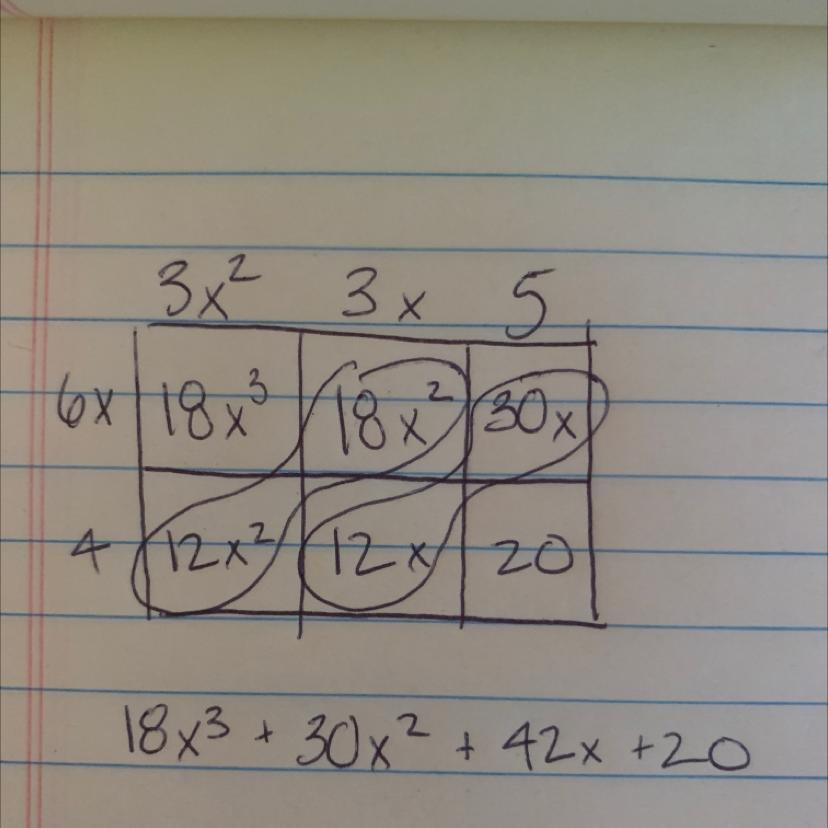 3x² 3x 5
6x 18x³ 18x² 30x
4 12x² 12x 20
18x³ + 30x² + 42x + 20